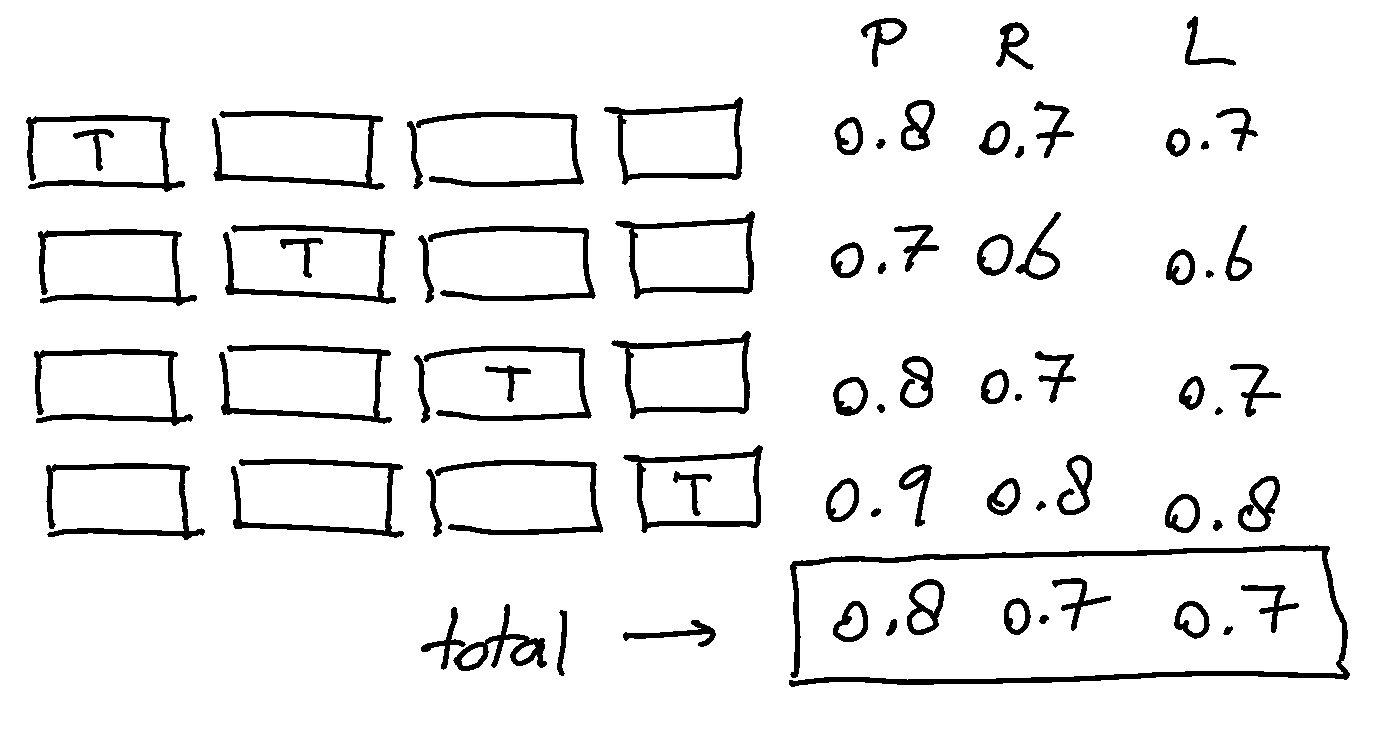 P R L
T 0.8 0.7 0.7
T 0.7 0.6 0.6
T 0.8 0.7 0.7
T 0.9 0.8 0.8
total → 0.8 0.7 0.7